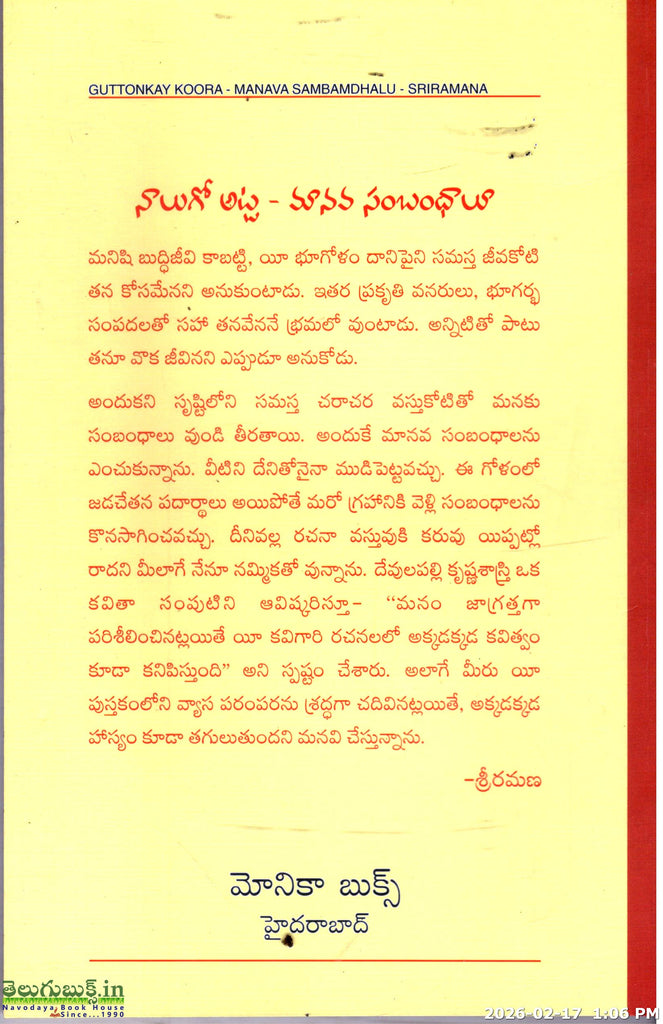 GUTTONKAY KOORA - MANAVA SAMBAMDHALU - SRIRAMANA
నాలుగో అట్ట - మానవ సంబంధాలూ
మనిషి బుద్ధిజీవి కాబట్టి, యీ భూగోళం దానిపైని సమస్త జీవకోటి
తన కోసమేనని అనుకుంటాడు. ఇతర ప్రకృతి వనరులు, భూగర్భ
సంపదలతో సహా తనవేననే భ్రమలో వుంటాడు. అన్నిటితో పాటు
తనూ వొక జీవినని ఎప్పుడూ అనుకోడు.
అందుకని సృష్టిలోని సమస్త చరాచర వస్తుకోటితో మనకు
సంబంధాలు వుండి తీరతాయి. అందుకే మానవ సంబంధాలను
ఎంచుకున్నాను. వీటిని దేనితోనైనా ముడిపెట్టవచ్చు. ఈ గోళంలో
జడచేతన పదార్థాలు అయిపోతే మరో గ్రహానికి వెళ్లి సంబంధాలను
కొనసాగించవచ్చు. దీనివల్ల రచనా వస్తువుకి కరువు యిప్పట్లో
రాదని మీలాగే నేనూ నమ్మికతో వున్నాను. దేవులపల్లి కృష్ణశాస్త్రి ఒక
కవితా సంపుటిని ఆవిష్కరిస్తూ– “మనం జాగ్రత్తగా
పరిశీలించినట్లయితే యీ కవిగారి రచనలలో అక్కడక్కడ కవిత్వం
కూడా కనిపిస్తుంది” అని స్పష్టం చేశారు. అలాగే మీరు యీ
పుస్తకంలోని వ్యాస పరంపరను శ్రద్ధగా చదివినట్లయితే, అక్కడక్కడ
హాస్యం కూడా తగులుతుందని మనవి చేస్తున్నాను.
–శ్రీరమణ
మోనికా బుక్స్
హైదరాబాద్
తెలుగుబుక్స్.in
Navodaya Book House
Since...1990
2026-02-17 1:06 PM